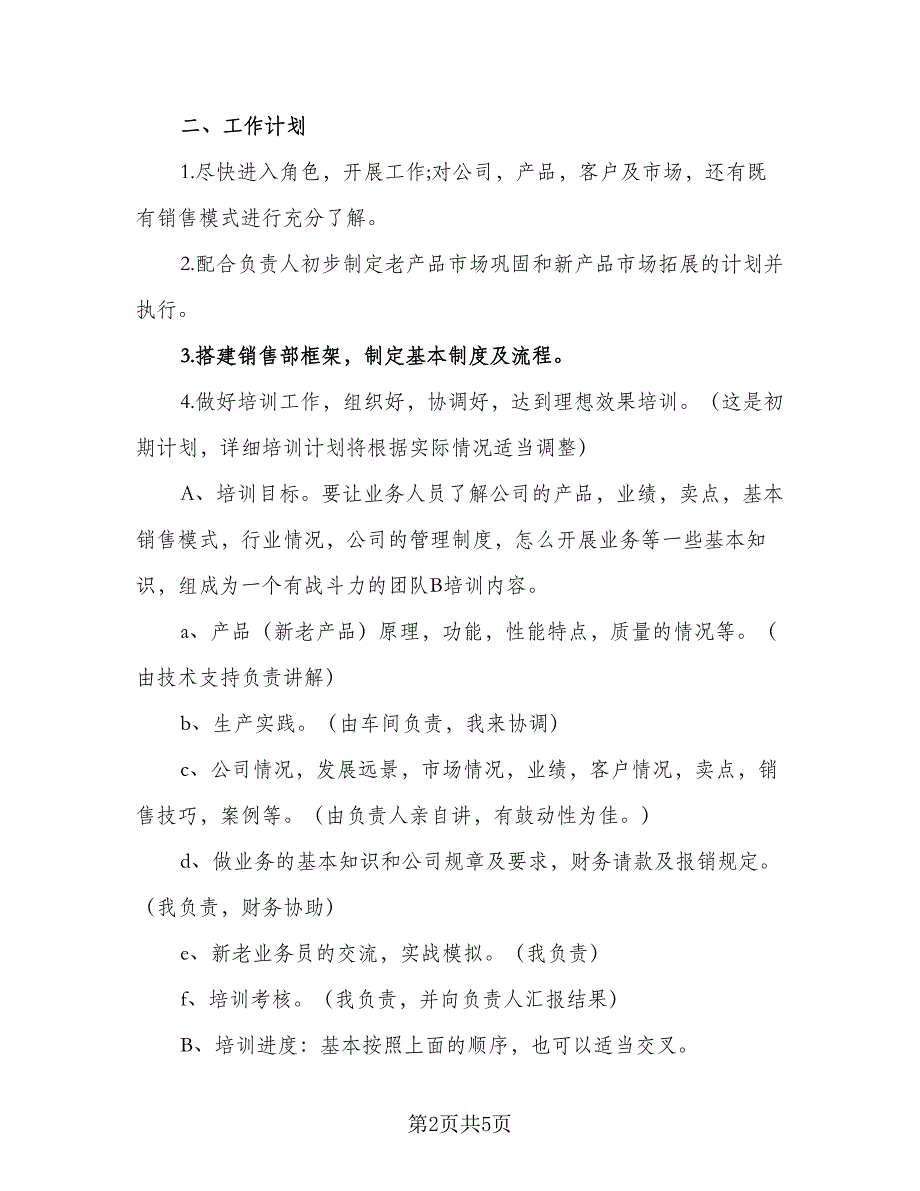 二、工作计划
1.尽快进入角色，开展工作;对公司，产品，客户及市场，还有既
有销售模式进行充分了解。
2.配合负责人初步制定老产品市场巩固和新产品市场拓展的计划并
执行。
3.搭建销售部框架，制定基本制度及流程。
4.做好培训工作，组织好，协调好，达到理想效果培训。（这是初
期计划，详细培训计划将根据实际情况适当调整）
A、培训目标。要让业务人员了解公司的产品，业绩，卖点，基本
销售模式，行业情况，公司的管理制度，怎么开展业务等一些基本知
识，组成为一个有战斗力的团队B培训内容。
a、产品（新老产品）原理，功能，性能特点，质量的情况等。（
由技术支持负责讲解）
b、生产实践。（由车间负责，我来协调）
c、公司情况，发展远景，市场情况，业绩，客户情况，卖点，销
售技巧，案例等。（由负责人亲自讲，有鼓动性为佳。）
d、做业务的基本知识和公司规章及要求，财务请款及报销规定。
（我负责，财务协助）
e、新老业务员的交流，实战模拟。（我负责）
f、培训考核。（我负责，并向负责人汇报结果）
B、培训进度：基本按照上面的顺序，也可以适当交叉。
第2页共5页